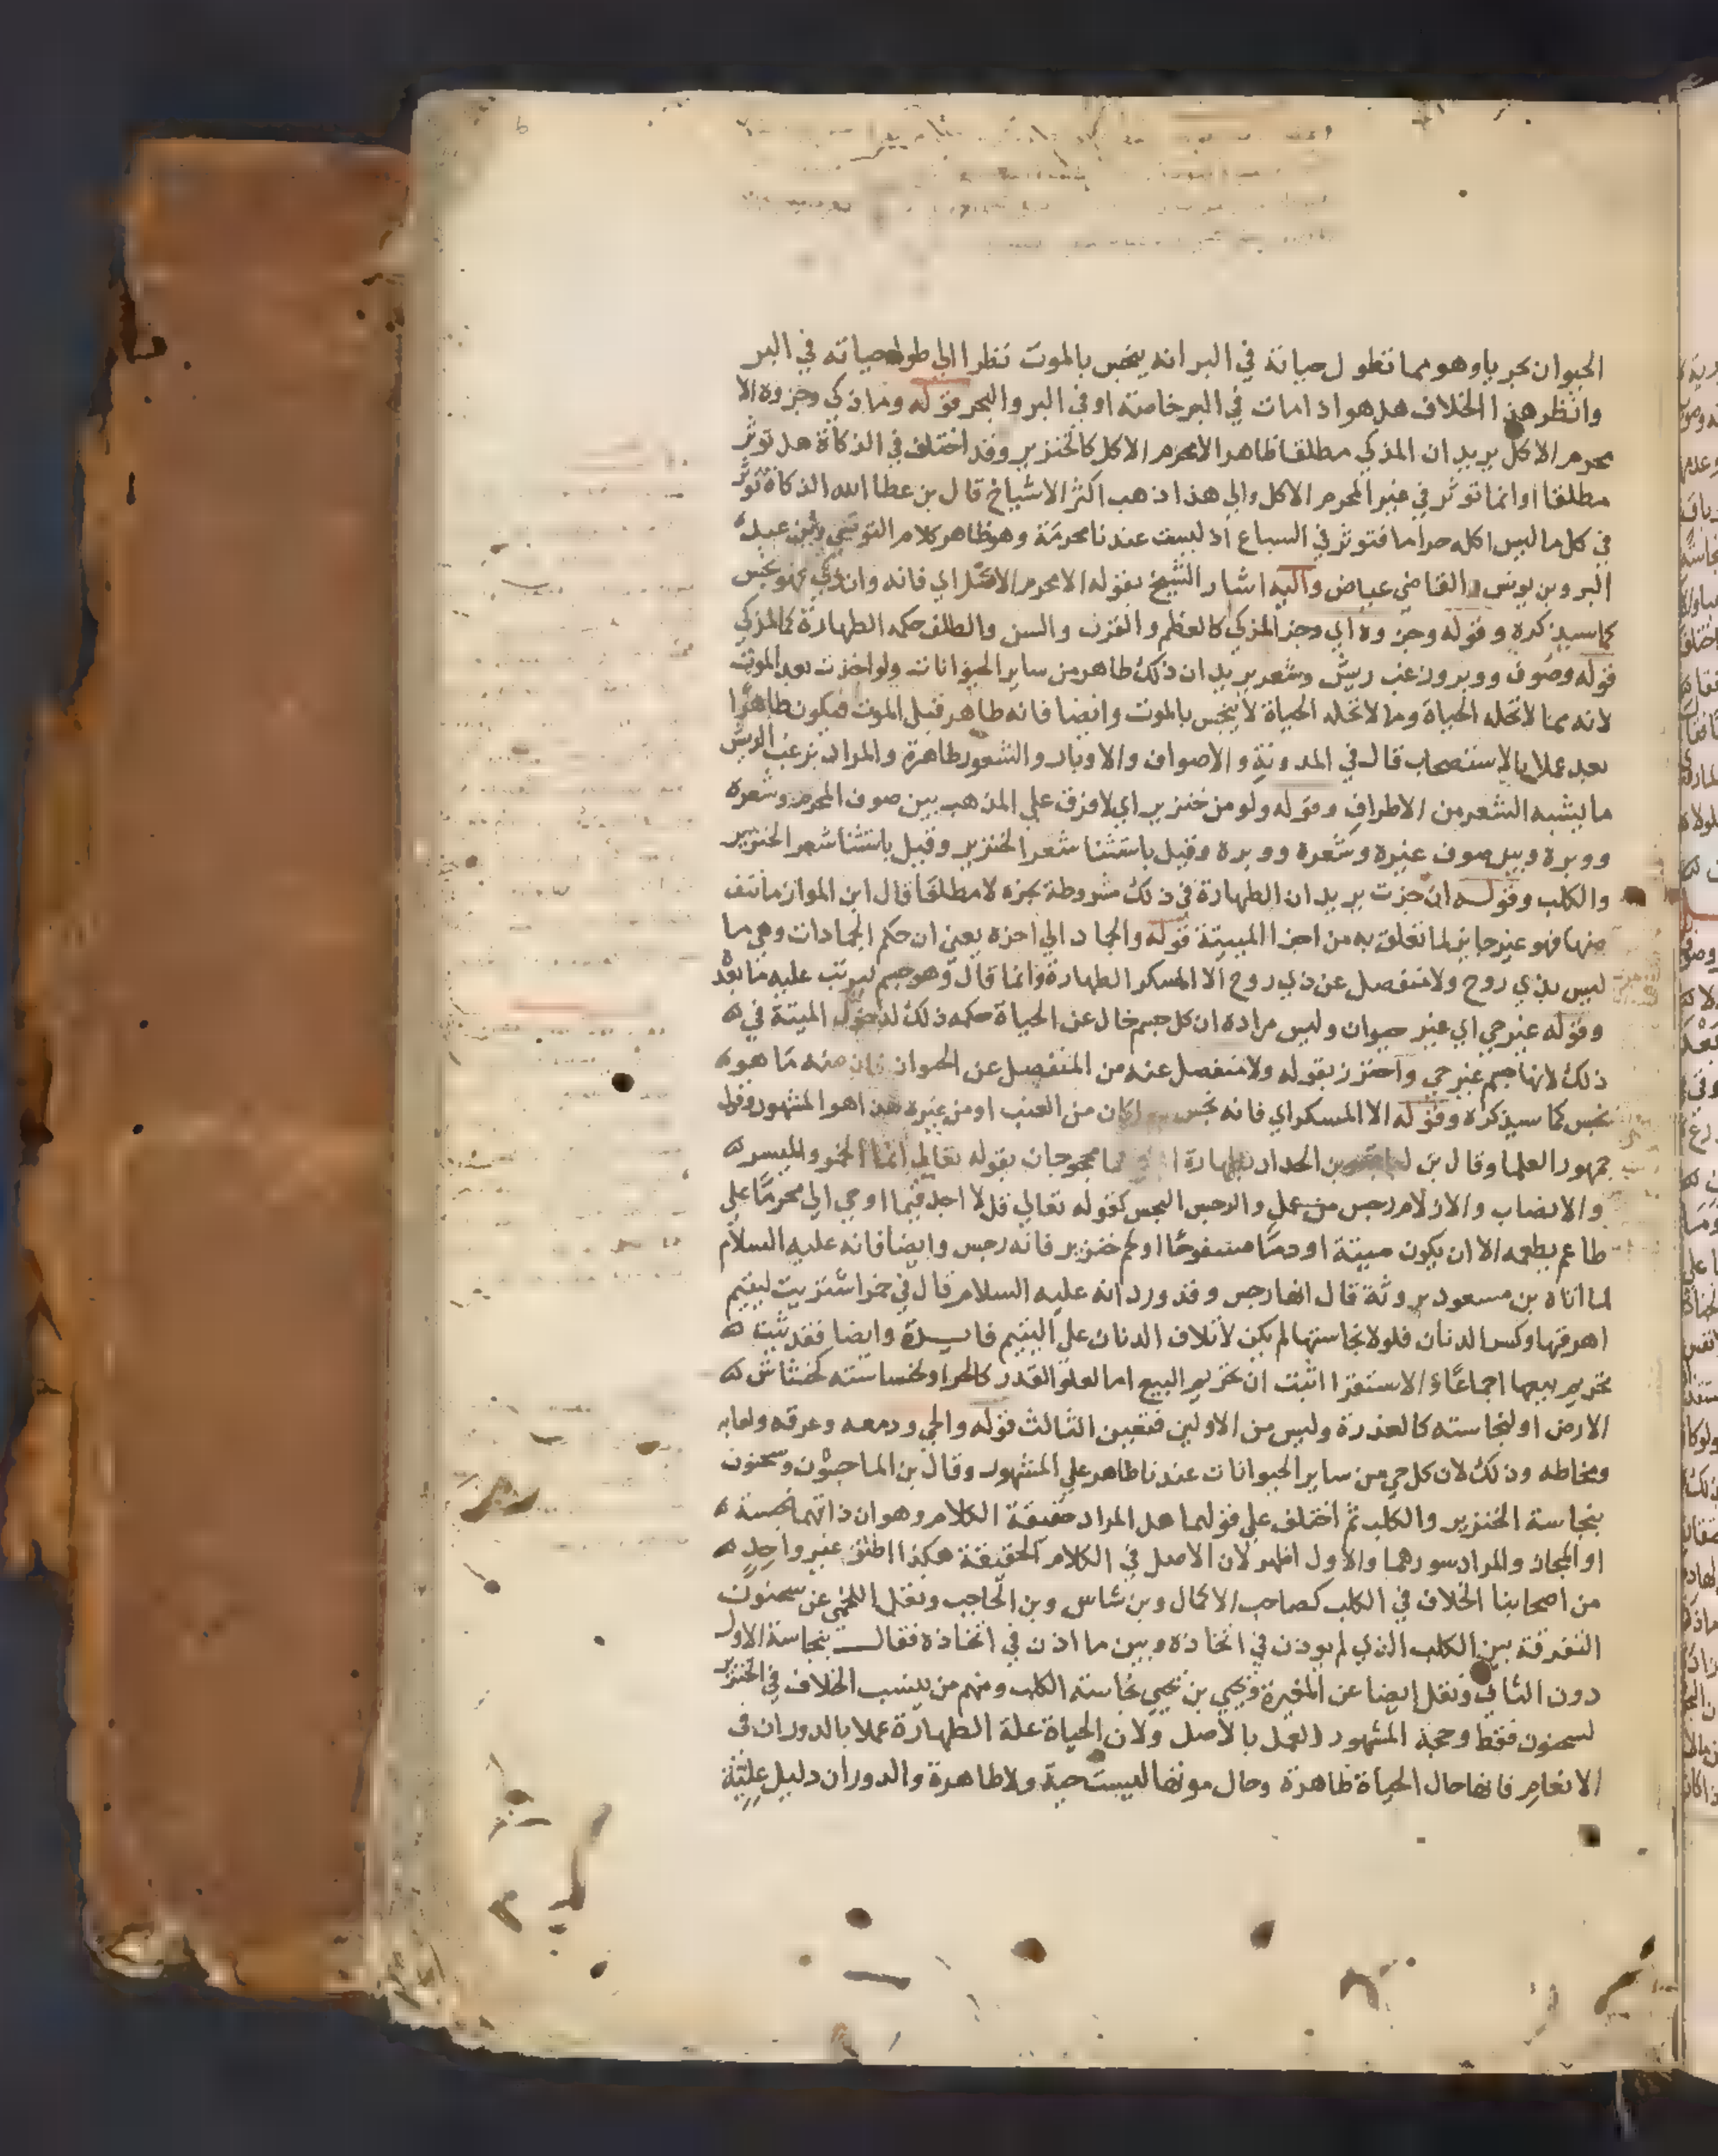 الحيوان بحريا وهو مما تطول حياته في البر انه ينجس بالموت نظرا الى طول حياته في البر
وانظر هذا الخلاف هل هو اذا مات في البر خاصة او في البر والبحر قوله وما ذكي وجزوه الا
محرم الاكل يريد ان المذكي مطلقا طاهر الا محرم الاكل كالخنزير وقد اختلف في الذكاة هل توثر
مطلقا او انما توثر في غير المحرم الاكل والي هذا ذهب اكثر الاشياخ قال بن عطا الله الذكاة توثر
في كل ما ليس اكله حراما فتوثر في السباع اذ ليست عندنا محرمة وهو ظاهر كلام التونسي وابن عبد
البر وبن يونس والقاضي عياض واليه اشار الشيخ بقوله الا محرم الاكل اي فانه وان ذكي فهو نجس
كما سيذكره وقوله وجزوه اي وجز المذكي كالعظم والقرن والسن والظلف حكمه الطهارة كالمذكي
قوله وصوف ووبر وزغب ريش وشعر يريد ان ذلك طاهر من ساير الحيوانات ولو اخذت بعد الموت
لانه مما لا تحله الحياة وما لا تحله الحياة لا ينجس بالموت وايضا فانه طاهر قبل الموت فيكون طاهرا
بعد عملا بالاستصحاب قال في المدونة والاصواف والاوبار والشعور طاهرة والمراد بزغب الريش
ما يشبه الشعر من الاطراف وقوله ولو من خنزير اي لا فرق علي المذهب بين صوف المحرم وشعره
ووبره وبين صوف غيره وشعره ووبره وقيل باستثنا شعر الخنزير وقيل باستثنا شعر الخنزير
والكلب وقوله ان جزت يريد ان الطهارة في ذلك مشروطة بجزه لا مطلقا قال ابن المواز ما نتف
منها فهو غير جايز لما تعلق به من اجزا الميتة قوله والجماد الي اخره يعني ان حكم الجمادات وهي ما
ليس بذي روح ولا منفصل عن ذي روح الا المسكر الطهارة وانما قال وهو جسم ليرتب عليه ما بعد
وقوله غير حي اي غير حيوان وليس مراده ان كل جسم خال عن الحياة حكمه ذلك لدخول الميتة في
ذلك لانها جسم غير حي واحترز بقوله ولا منفصل عنه من المنفصل عن الحيوان فان منه ما هو
نجس كما سيذكره وقوله الا المسكر اي فانه نجس كان من العنب او من غيره هذا هو المشهور وقول
جمهور العلما وقال بن بن الحداد بطهارة محجوجان بقوله تعالي انما الخمر والميسر
والانصاب والازلام رجس من عمل والرجس النجس كقوله تعالي قل لا اجد فيما اوحي الي محرما علي
طاعم يطعمه الا ان يكون ميتة او دما مسفوحا او لحم خنزير فانه رجس وايضا فانه عليه السلام
لما اتاه بن مسعود بروثة قال انها رجس وقد ورد انه عليه السلام قال في خمر اشتريت ليتيم
اهرقها وكسر الدنان فلولا نجاستها لم يكن لاتلاف الدنان علي اليتيم فايدة وايضا فقد ثبت
تحريم بيعها اجماعا والاستقرا اثبت ان تحريم البيع اما لعلو القدر كالحر او لخساسته كخشاش
الارض او لنجاسته كالعذرة وليس من الاولين فتعين الثالث قوله والحي ودمعه وعرقه ولعابه
ومخاطه وذلك لان كل حي من ساير الحيوانات عندنا طاهر علي المشهور وقال بن الماجشون وسحنون
بنجاسة الخنزير والكلب ثم اختلف علي قولهما هل المراد حقيقة الكلام وهو ان ذاتهما نجسة
او المجاز والمراد سورهما والاول اظهر لان الاصل في الكلام الحقيقة هكذا اطلق غير واحد
من اصحابنا الخلاف في الكلب كصاحب الاكمال وبن شاس وبن الحاجب ونقل اللخمي عن سحنون
التفرقة بين الكلب الذي لم يوذن في اتخاذه وبين ما اذن في اتخاذه فقال بنجاسة الاول
دون الثاني ونقل ايضا عن المغيرة ويحيي بن يحيي نجاسة الكلب ومنهم من ينسب الخلاف في الخنزير
لسحنون فقط وحجة المشهور العمل بالاصل ولان الحياة علة الطهارة عملا بالدوران في
الانعام فانها حال الحياة طاهرة وحال موتها ليست حية ولا طاهرة والدوران دليل علية